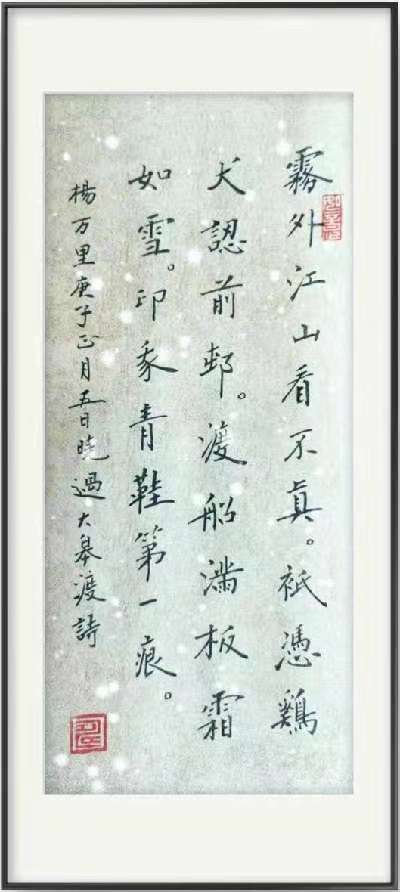 霧外江山看不真。衹憑鷄
犬認前邨。渡船滿板霜
如雪。印我青鞋第一痕。
楊万里庚子正月五日曉過大皋渡詩